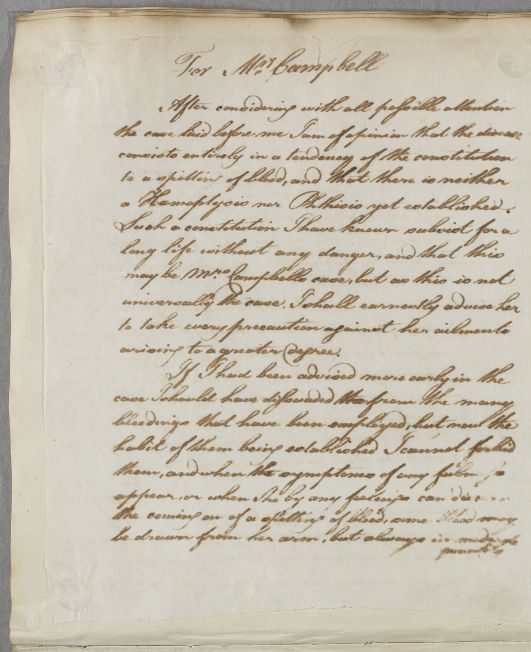 For Mrs Campbell
After considering with all possible attention
the case laid before me I am of opinion that the disease
consists entirely in a tendency of the constitution
to a spitting of blood, and that there is neither
a Hemoptysis nor Phthisis yet established.
Such a constitution I have known subsist for a
long life without any danger, and that this
may be Mrs Campbells case, but as this is not
universally the case, I shall earnestly advise her
to take every precaution against her ailments
arising to a greater degree.
If I had been advised more early in the
case I should have dissuaded the from the many
bleedings that have been employed, but now the
habit of them being established I cannot forbid
them, and when the symptoms of any
appear, or when she by any feelings can
the coming on of a spitting of blood, some blood may
be drawn from her arm, but always in
quantity